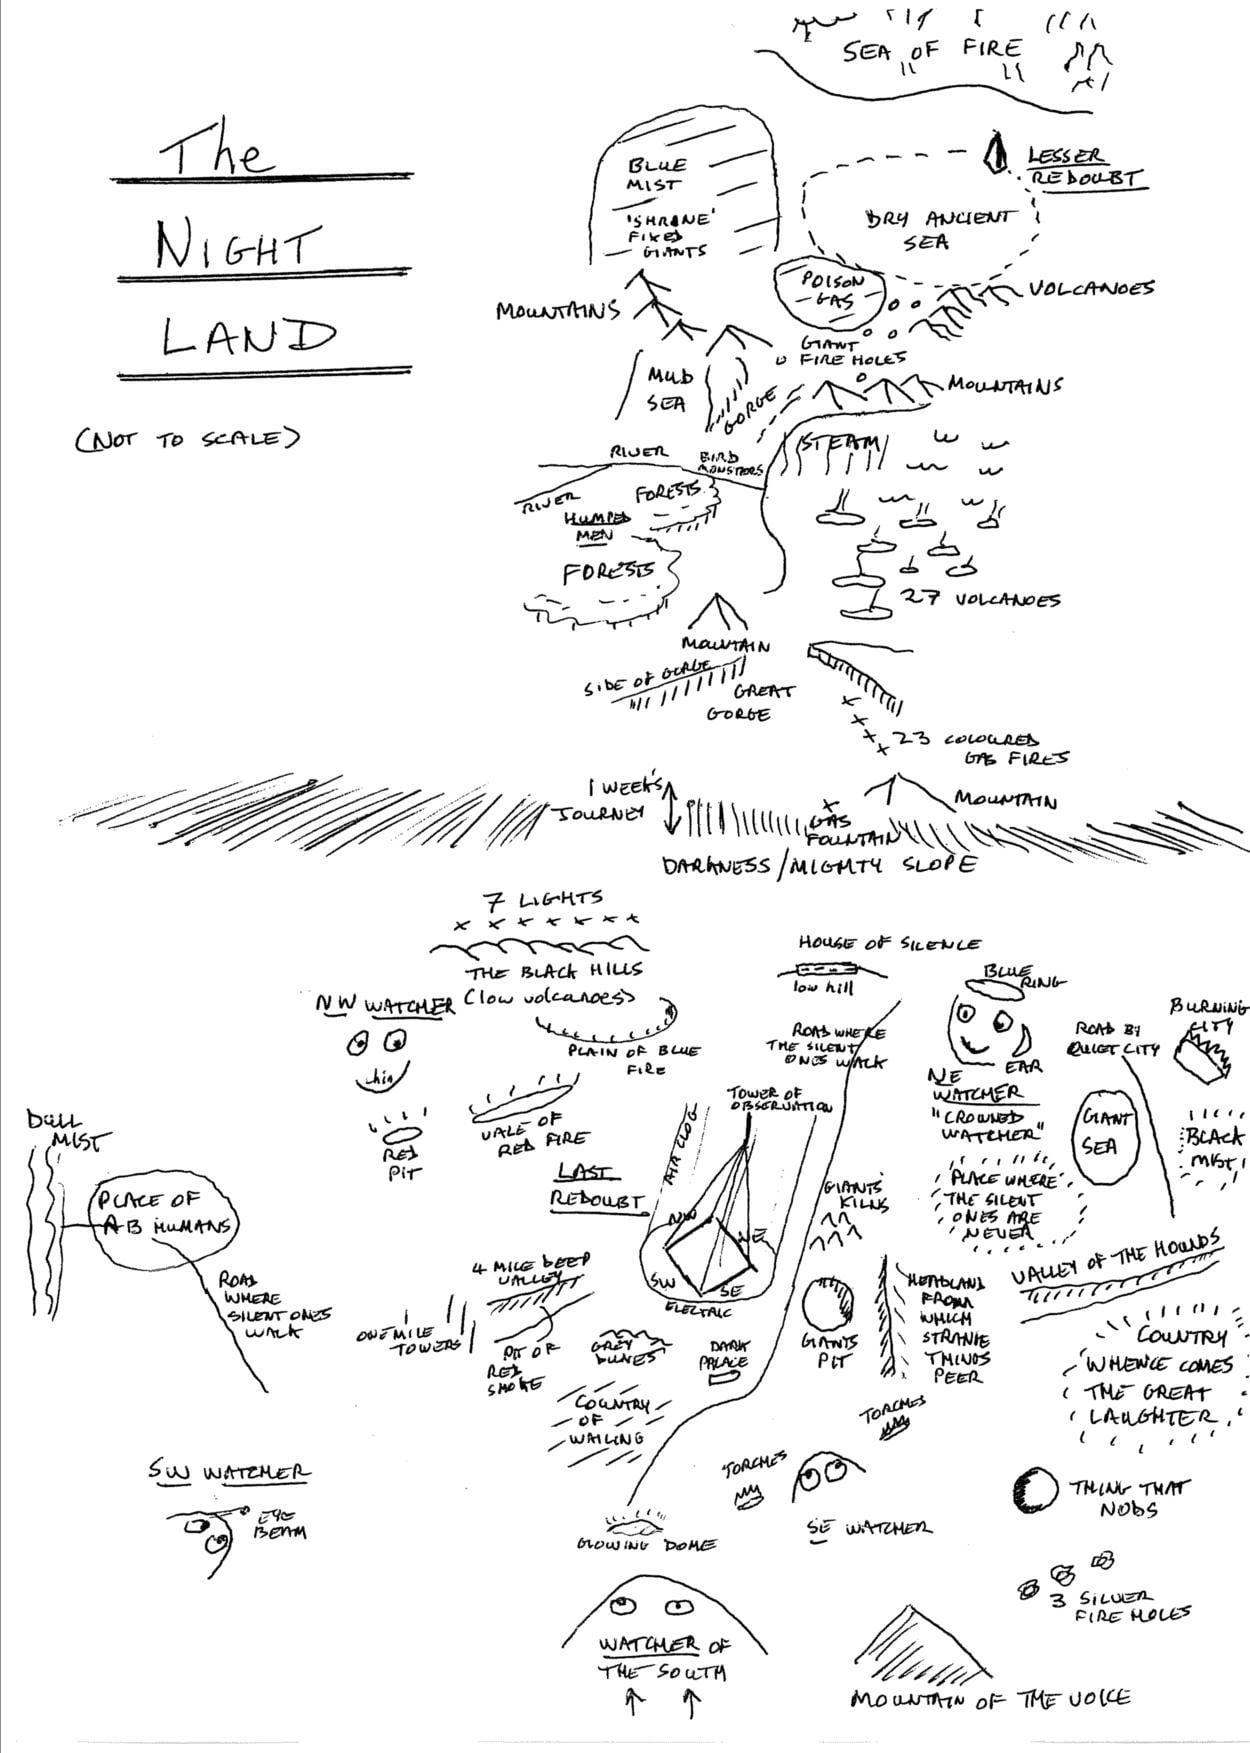 The
NIGHT
LAND
(NOT TO SCALE)
SEA OF FIRE
BLUE
MIST
'SHRINE'
FIXED
GIANTS
LESSER
REDOUBT
DRY ANCIENT
SEA
POISON
GAS
VOLCANOES
MOUNTAINS
GIANT
FIRE HOLES
MUD
SEA
GORGE
MOUNTAINS
STEAM
RIVER
BIRD
MONSTERS
RIVER
FORESTS
HUMPED
MEN
FORESTS
27 VOLCANOES
MOUNTAIN
SIDE OF GORGE
GREAT
GORGE
23 COLOURED
GAS FIRES
1 WEEK'S
JOURNEY
MOUNTAIN
GAS
FOUNTAIN
DARKNESS/MIGHTY SLOPE
7 LIGHTS
THE BLACK HILLS
(low volcanoes)
HOUSE OF SILENCE
low hill
BLUE
RING
NW WATCHER
chin
PLAIN OF BLUE
FIRE
ROAD WHERE
THE SILENT
ONES WALK
EAR
NE
WATCHER
"CROWNED
WATCHER"
ROAD BY
QUIET CITY
BURNING
CITY
GIANT
SEA
BLACK
MIST
DULL
MIST
RED
PIT
VALE OF
RED FIRE
TOWER OF
OBSERVATION
AIR CLOG
LAST
REDOUBT
NW
NE
SW
SE
ELECTRIC
GIANTS'
KILNS
PLACE WHERE
THE SILENT
ONES ARE
NEVER
PLACE OF
AB HUMANS
ROAD
WHERE
SILENT ONES
WALK
4 MILE DEEP
VALLEY
ONE MILE
TOWERS
PIT OF
RED
SMOKE
GREY
DUNES
DARK
PALACE
GIANTS
PIT
HEADLAND
FROM
WHICH
STRANGE
THINGS
PEER
VALLEY OF THE HOUNDS
COUNTRY
WHENCE COMES
THE GREAT
LAUGHTER
COUNTRY
OF
WAILING
TORCHES
TORCHES
SW WATCHER
EYE
BEAM
GLOWING DOME
SE WATCHER
THING THAT
NODS
3 SILVER
FIRE HOLES
WATCHER OF
THE SOUTH
MOUNTAIN OF THE VOICE